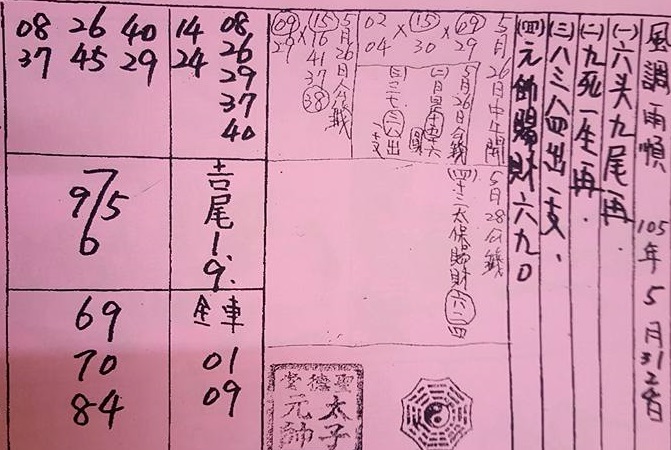 風調雨順 105年5月31日香
(一)六头九尾再.
(二)九死一生再.
(三)八三八四出一支.
(四)元帥賜財六九0
5月26日中午開
69
29
×
15
30
×
02
04
5月26日分錢
5月28分錢
(四)十三太保賜財六二四
5月26日分錢
15
16
41
37
38
×
09
29
14 08
24 26
29
37
40
08 26 40
37 45 29
吉尾1.9.
7
9/5
6
全車
01
09
69
70
84
聖德堂
太子元帥